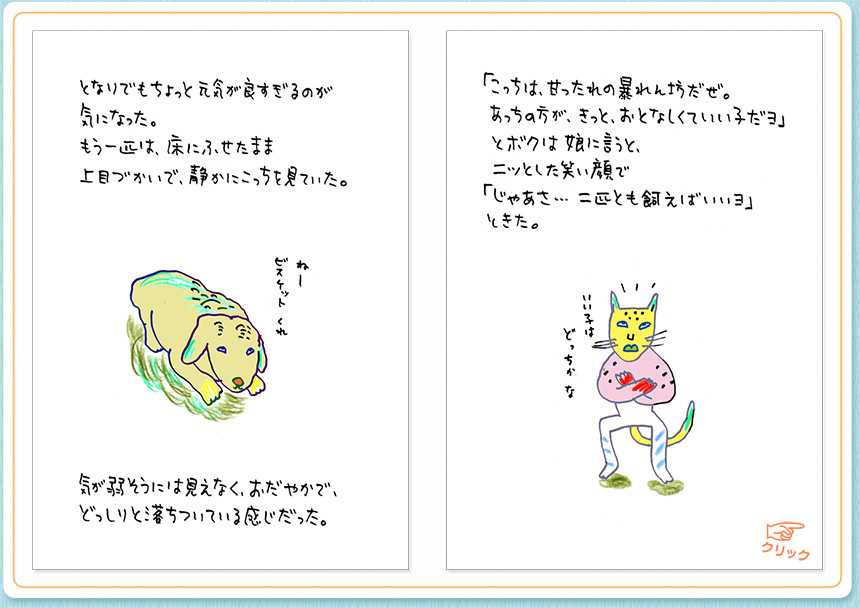 となりでもちょっと元気が良すぎるのが
気になった。
もう一匹は、床にふせたまま
上目づかいで、静かにこっちを見ていた。
ねー
ビスケット くれ
気が弱そうには見えなく、おだやかで、
どっしりと落ちついている感じだった。
「こっちは、甘ったれの暴れん坊だぜ。
あっちの方が、きっと、おとなしくていい子だヨ」
とボクは娘に言うと、
ニッとした笑い顔で
「じゃあさ… 二匹とも飼えばいいヨ」
ときた。
いい子は
どっちかな
クリック